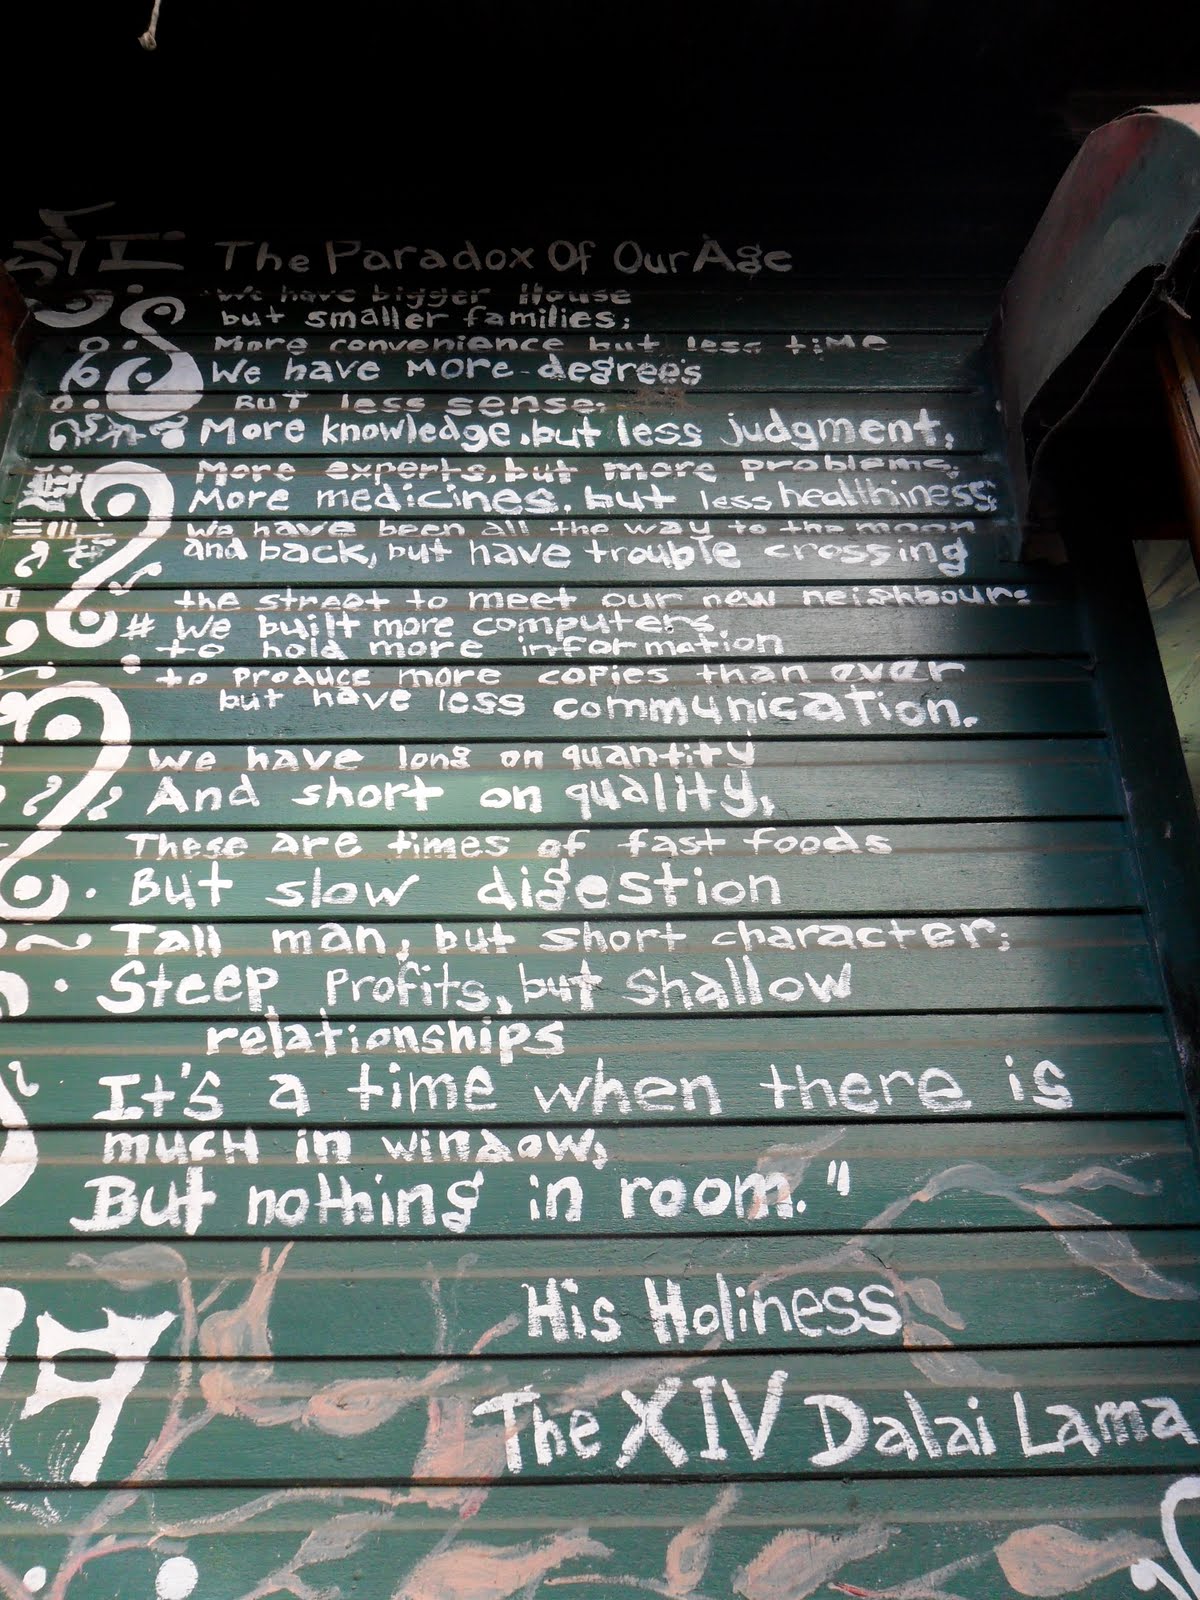 The Paradox Of Our Age
We have bigger House
but smaller families;
More convenience but less time
We have More degrees
But less sense;
More knowledge, but less judgment,
More experts, but more problems,
More medicines, but less healthiness
We have been all the way to the moon
and back, but have trouble crossing
the street to meet our new neighbour.
# We built more computers
to hold more information
to produce more copies than ever
but have less communication.
We have long on quantity
And short on quality,
These are times of fast foods
But slow digestion
Tall man, but short character;
Steep Profits, but shallow
relationships
It's a time when there is
much in window,
But nothing in room."
His Holiness
The XIV Dalai Lama